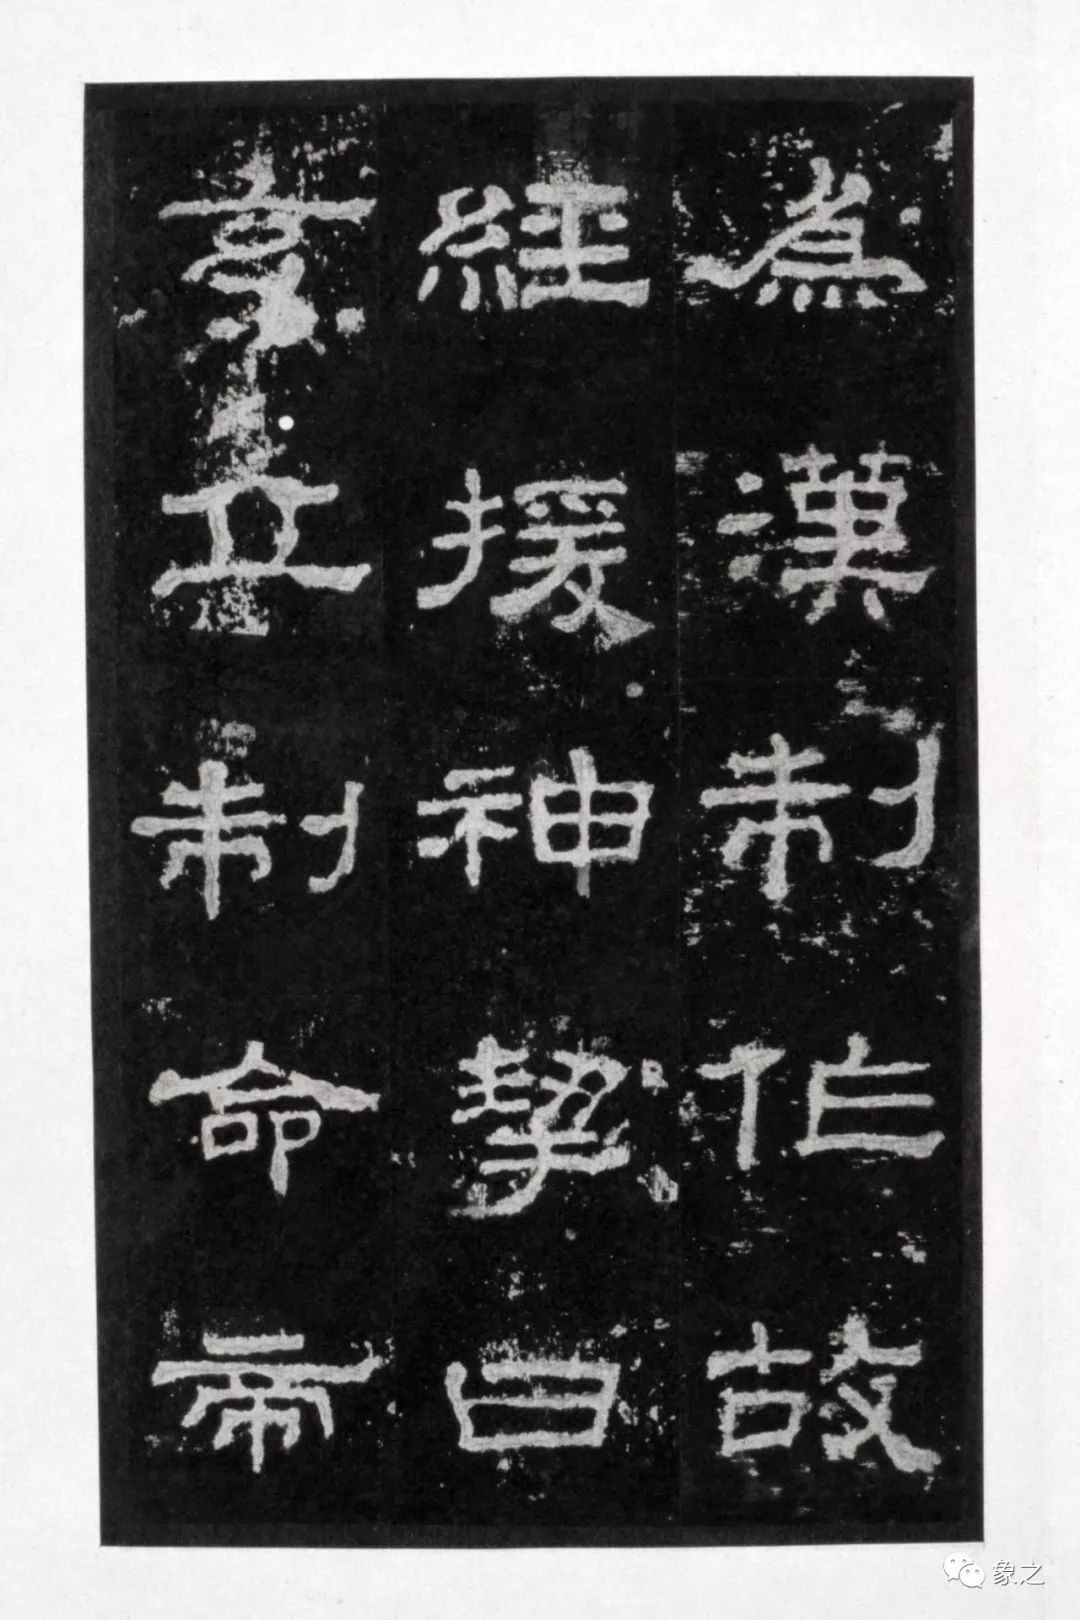 為漢制作故
經援神挈曰
玄丘制命帝
象之